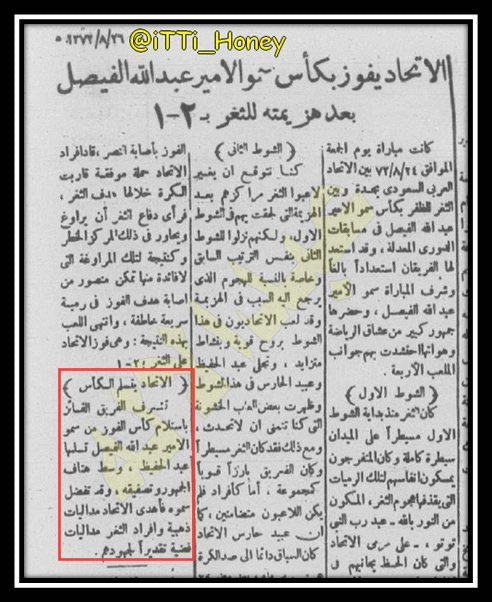 ١٣٧٢/٨/٢٦
@iTTi_Honey
الاتحاد يفوز بكأس سمو الامير عبد الله الفيصل
بعد هزيمته للثغر بـ ٢-١
كانت مباراة يوم الجمعة
الموافق ٧٢/٨/٢٤ بين الاتحاد
العربى السعودى بجدة وبين
الثغر للظفر بكأس سمو الامير
عبد الله الفيصل فى مسابقات
الدورى المعدلة ، وقد استعد
لها الفريقان استعداداً بالغاً
وشرف المباراة سمو الامير
عبد الله الفيصل ، وحضرها
جمهور كبير من عشاق الرياضة
وهواتها احتشدت بهم جوانب
الملعب الاربعة .
( الشوط الاول )
كان الثغر منذ بداية الشوط
الاول مسيطراً على الميدان
سيطرة كاملة وكان المتفرجون
يمسكون انفاسهم لتلك الرميات
التى يقذفها هجوم الثغر ، المكون
من النور بالله - عبد رب النبى
توتو ، - على مرمى الاتحاد
والتى كان الحظ يجانبهم فى
( الشوط الثانى )
كنا نتوقع ان يغير
لاعبوا الثغر مراكزهم بعد
الهزيمة التى لحقت بهم فى الشوط
الاول ، ولكنهم نزلوا للشوط
الثانى بنفس الترتيب السابق
وخاصة بالنسبة للهجوم الذى
يرجع اليه السبب فى الهزيمة
وقد لعب الاتحاديون فى هذا
الشوط بروح قوية وبنشاط
متزايد ، وتجلى عبد الحفيظ
وعبيد الحارس فى هذا الشوط
وظهرت بعض العاب الخشونة
التى كنا نتمنى ان لا تحدث ،
ومع ذلك فقد كان الثغر مسيطراً
وكان الفريق بارزاً قوياً
كمجموعة ، أما كأفراد فلم
يكن اللاعبون متضامنين ، كما
ان عبيد حارس الاتحاد
كان السباق دائماً الى صد الكرة
الفوز بأصابة انتصر ، قاد افراد
الاتحاد حملة موفقة قاربت
الكرة خلالها هدف الثغر ،
فرأى دفاع الثغر أن يراوغ
ويحاور فى ذلك المركز الخطر
وكنتيجة لتلك المراوغة التى
لا فائدة منها تمكن منصور من
اصابة هدف الفوز فى رمية
سريعة خاطفة ، وانتهى اللعب
بهذه النتيجة : وهى فوز الاتحاد
على الثغر ٢-١
( الاتحاد يتسلم الكأس )
تشرف الفريق الفائز
باستلام كأس الفوز من سمو
الامير عبد الله الفيصل تسلمها
عبد الحفيظ ، وسط هتاف
الجمهور وتصفيقه ، وقد تفضل
سموه فأهدى الاتحاد مداليات
ذهبية وافراد الثغر مداليات
فضية تقديراً لجهودهم .